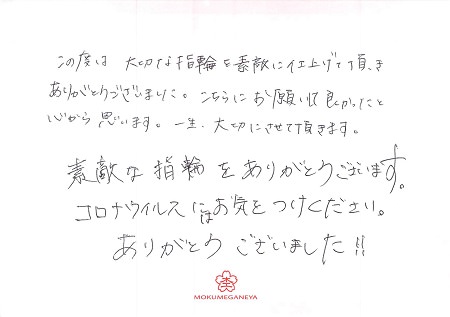 この度は 大切な指輪を素敵に仕上げて頂き
ありがとうございました。こちらにお願いして良かったと
心から思います。一生、大切にさせて頂きます。
素敵な指輪をありがとうございます。
コロナウイルスにはお気をつけください。
ありがとうございました!!
MOKUMEGANEYA